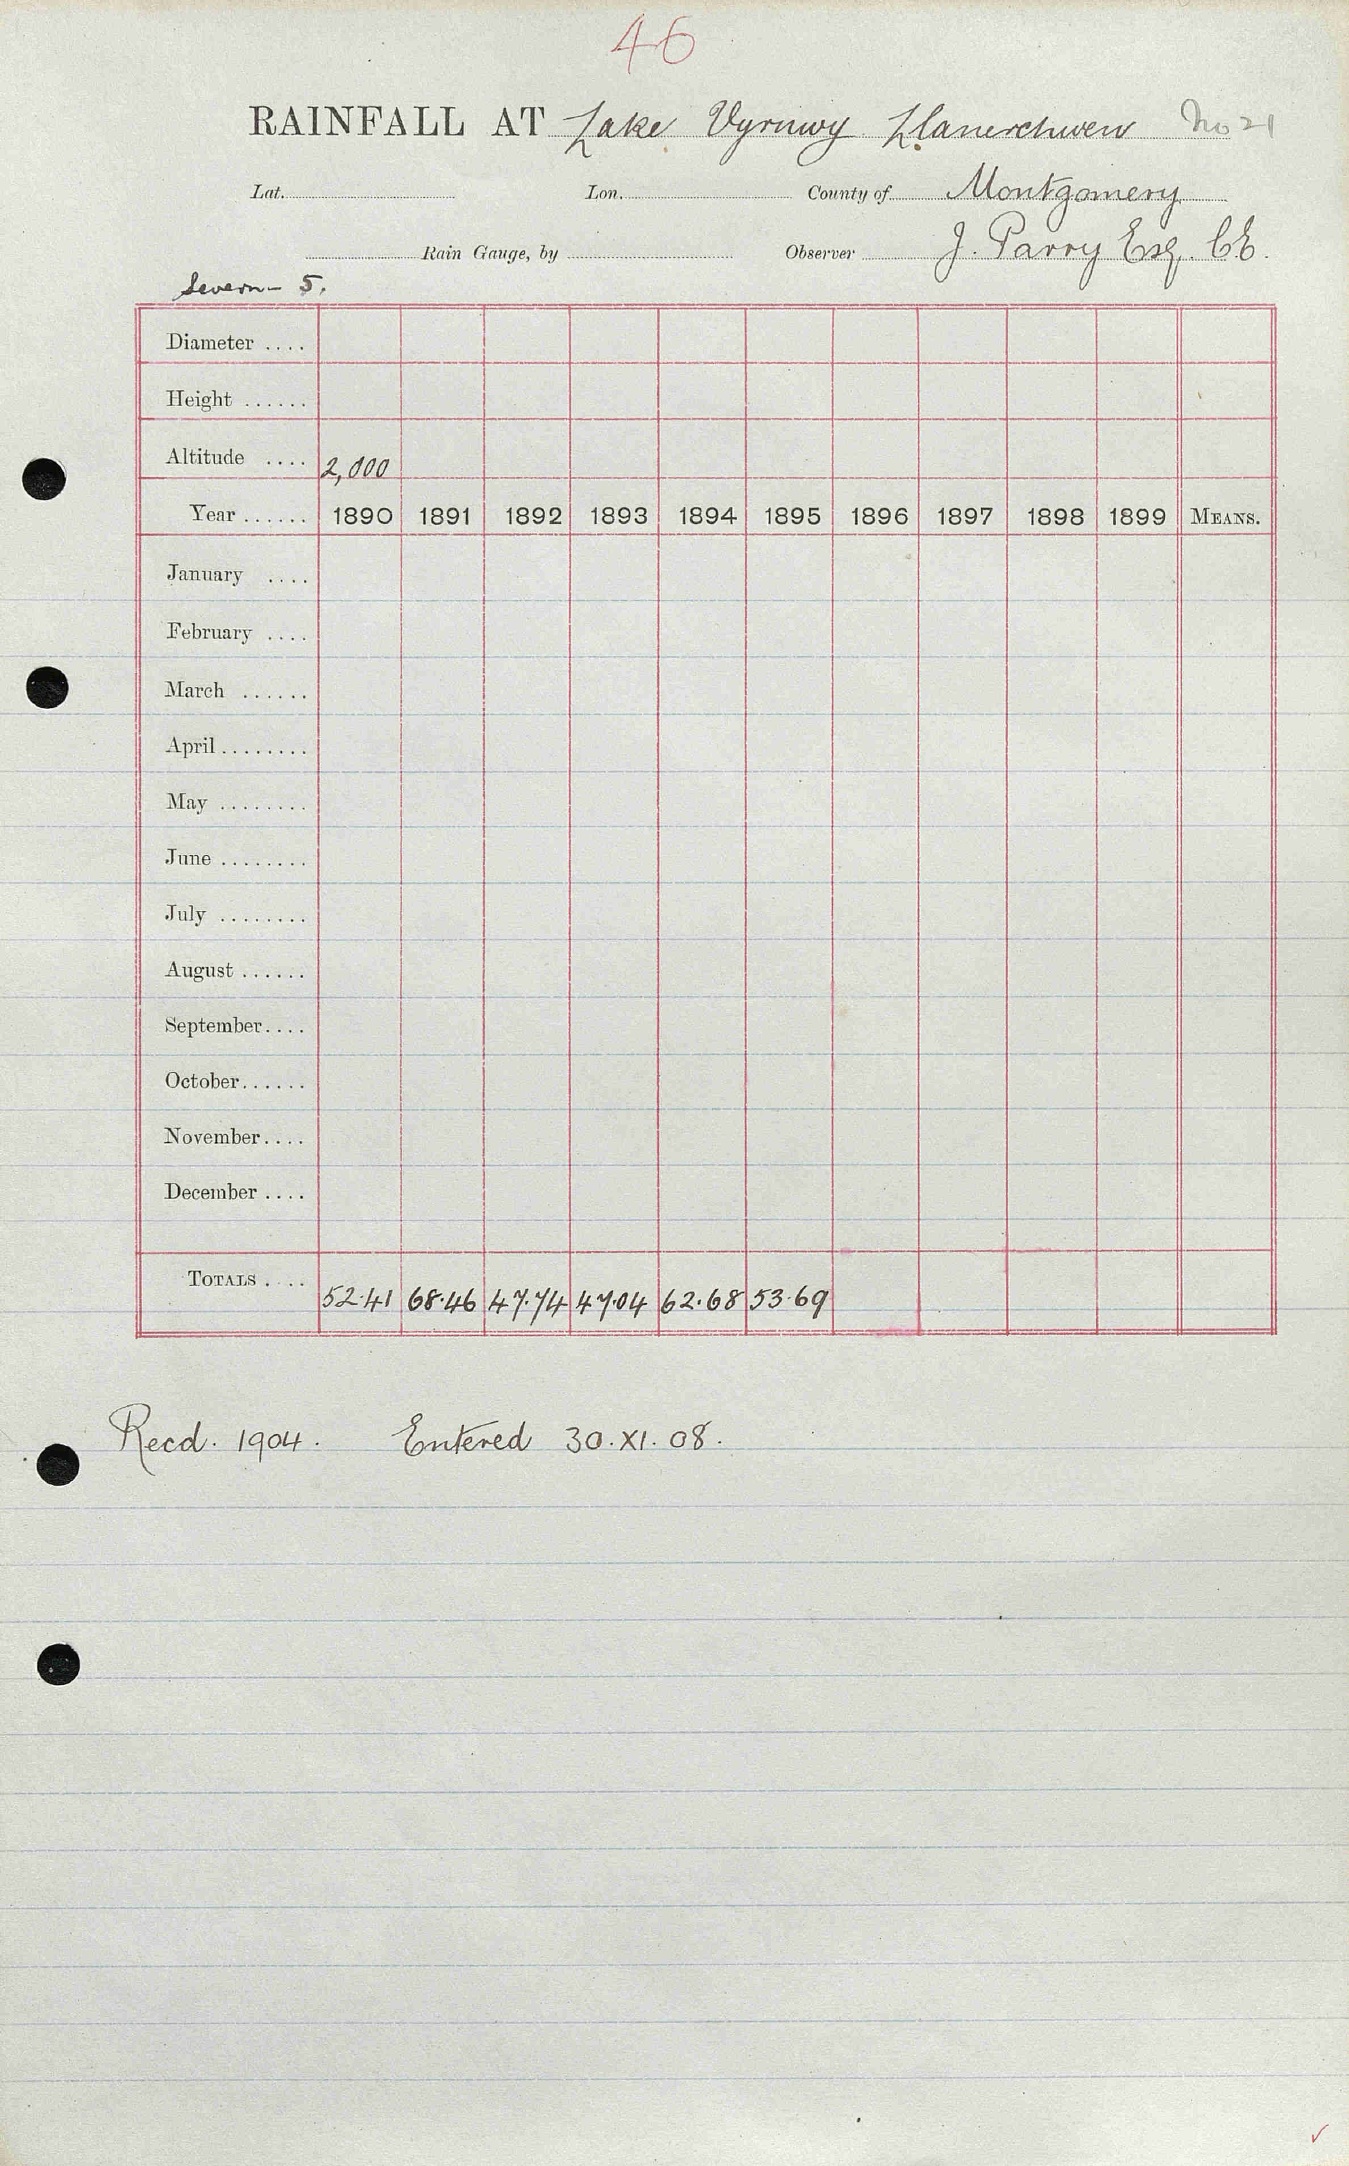 46
RAINFALL AT Lake Vyrnwy Llanerchwen No 21
Lat. Lon. County of Montgomery
Rain Gauge, by Observer J. Parry Esq. C.E.
Severn - 5.
Diameter ....
Height ......
Altitude .... 2,000
Year ...... 1890 1891 1892 1893 1894 1895 1896 1897 1898 1899 MEANS.
January ....
February ....
March ......
April ........
May ........
June ........
July ........
August ......
September ....
October ......
November ....
December ....
TOTALS .... 52.41 68.46 47.74 47.04 62.68 53.69
Recd. 1904. Entered 30.XI.08.